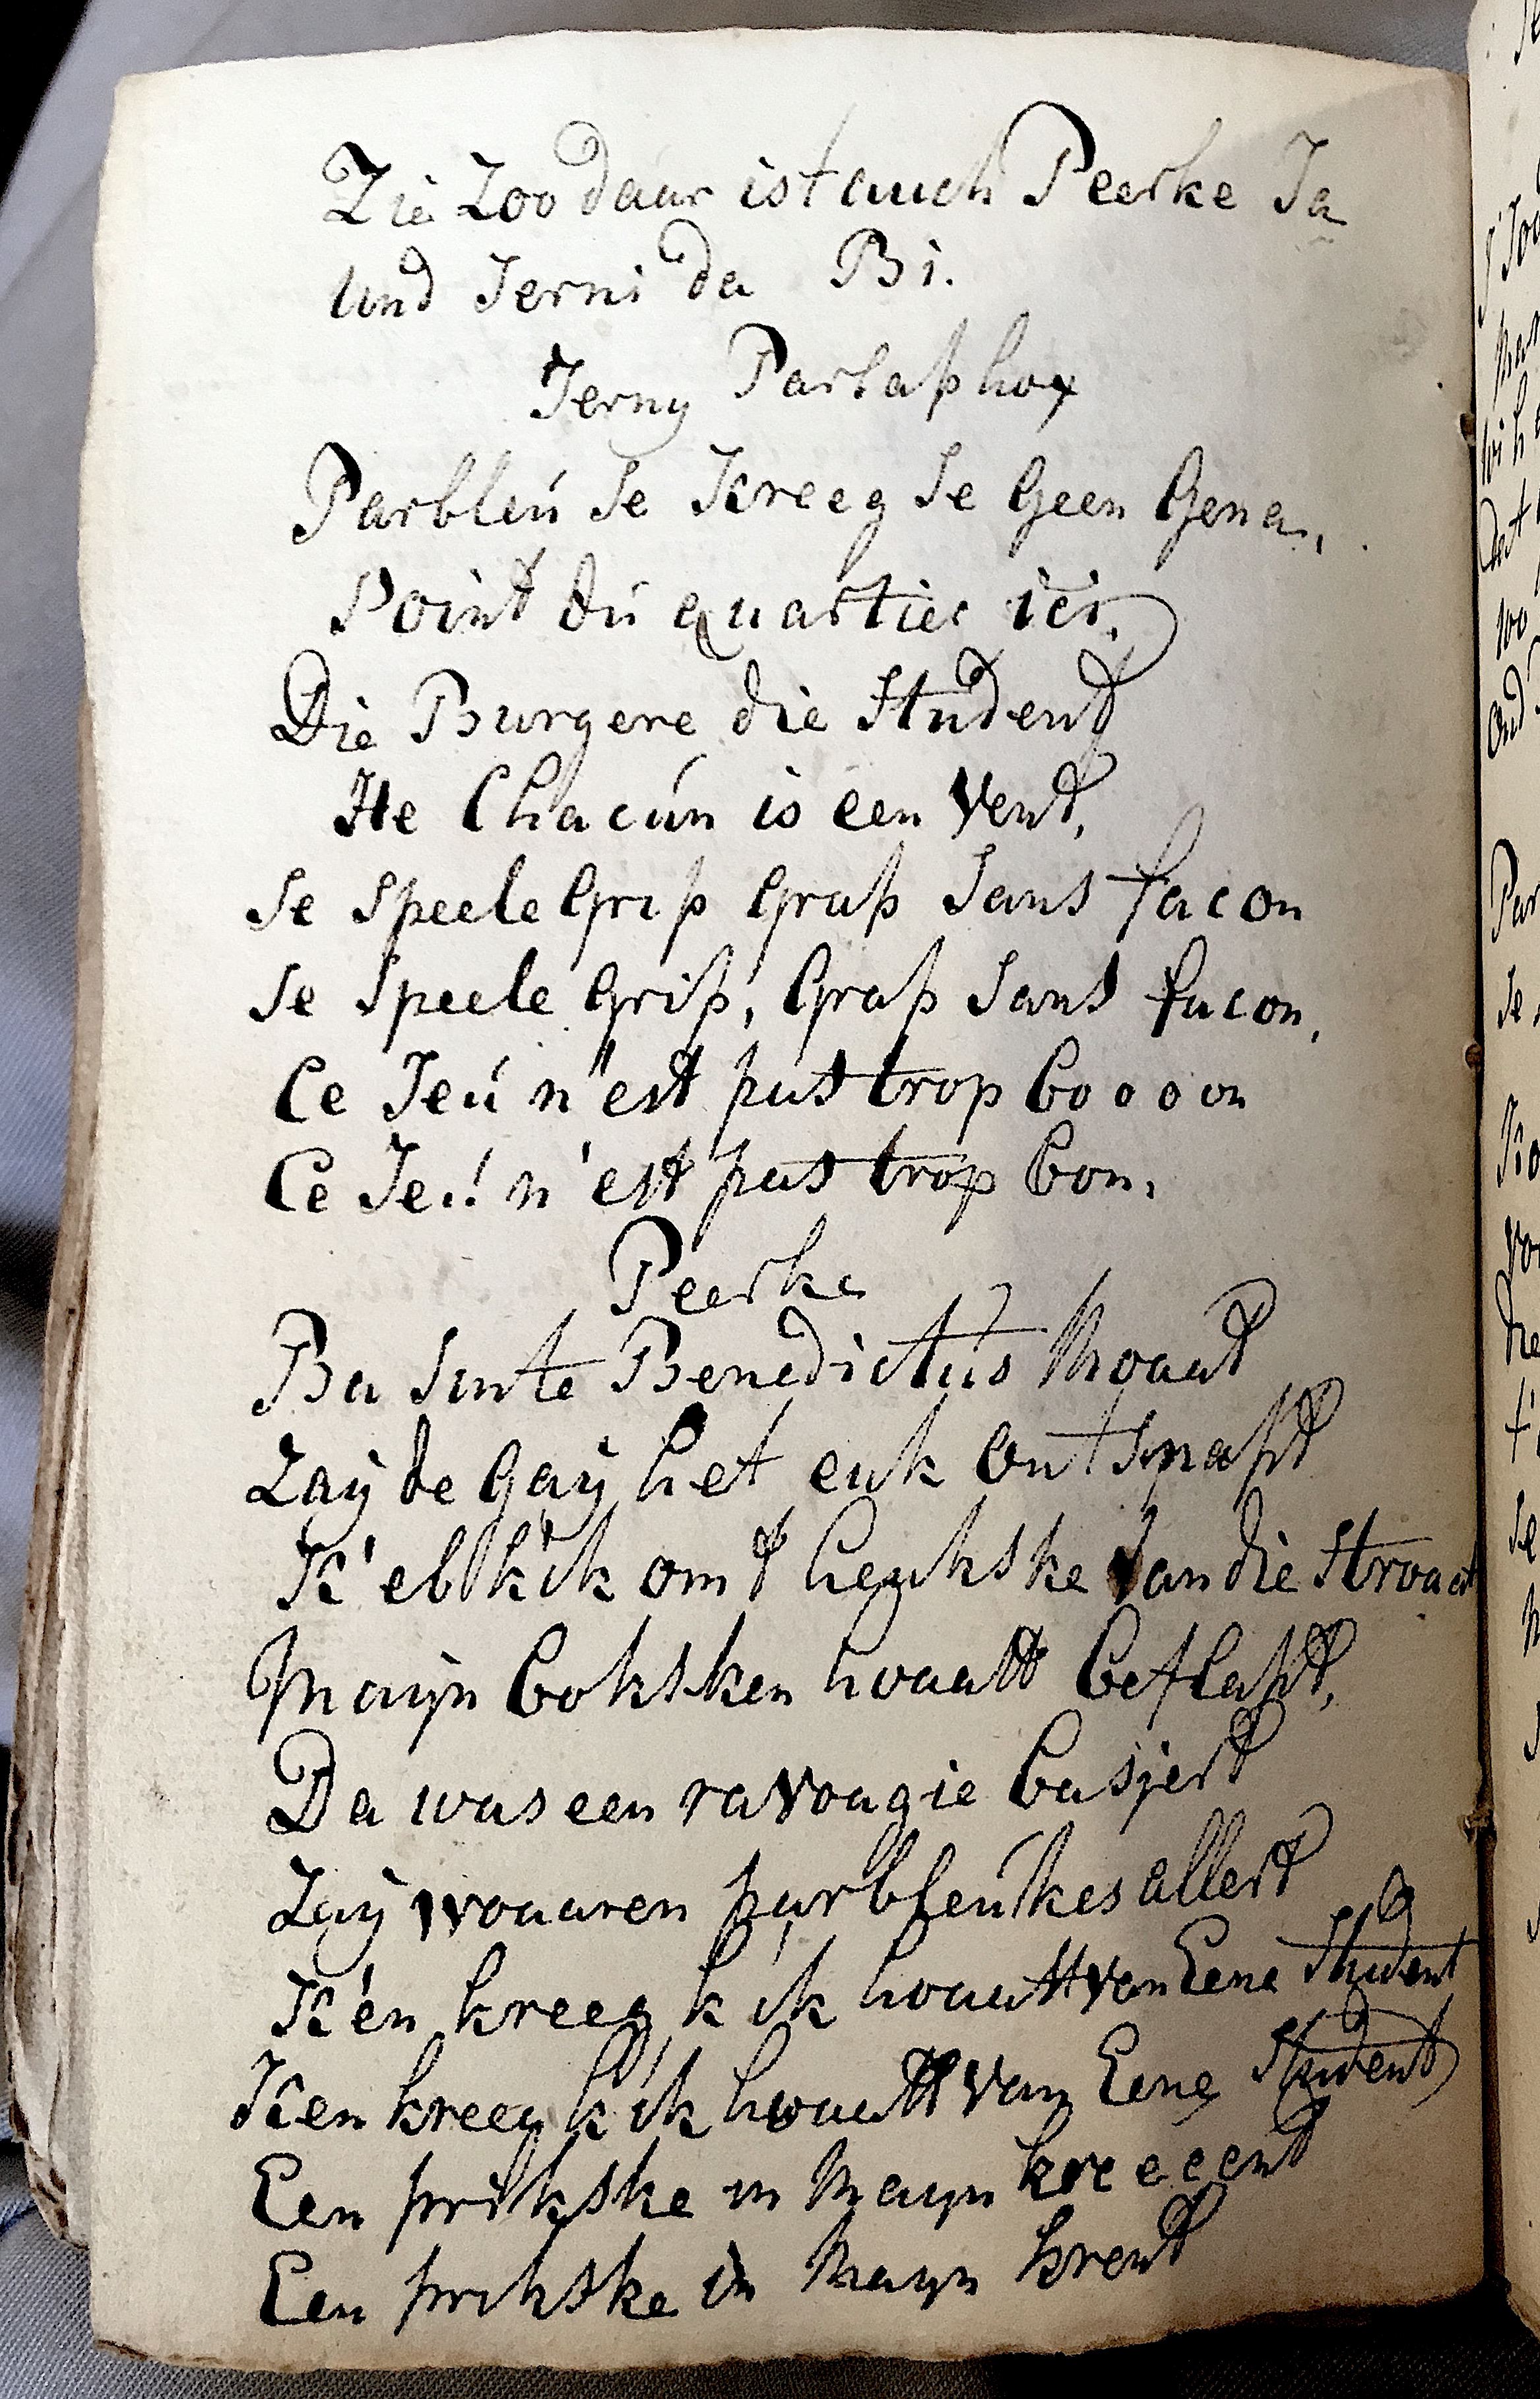 Zie Zoo daar ist auch Peerke Ja
Und Jerni da Bi.
Jerny Parlaphox
Parbleú Je Kreeg Je Geen Gena,
Point dú quartier ici,
Die Burgere die Student
He Chacún is een Vent,
Je Speele Grip Grap Sans facon
Je Speele Grip, Grap Sans facon,
Ce Jeú n'est pas trop boooon
Ce Jeú n'est pas trop bon,
Peerke
Ba Sinte Benedictus Moaat
Zaÿ de Gaÿ het euk ontsnapt
K'eb k'ik om t heukske Van die Stroaat
Maijn boksken hoaatt beflapt,
Da was een ravoagie basjert
Zaÿ woaaren parbleúkes allert
K'en kreeg k ik hoaatt van Eene Student
K'en kreeg k ik hoaatt van Eene Student
Een prikske in Maijn kreeeent
Een prikske in Maijn krent